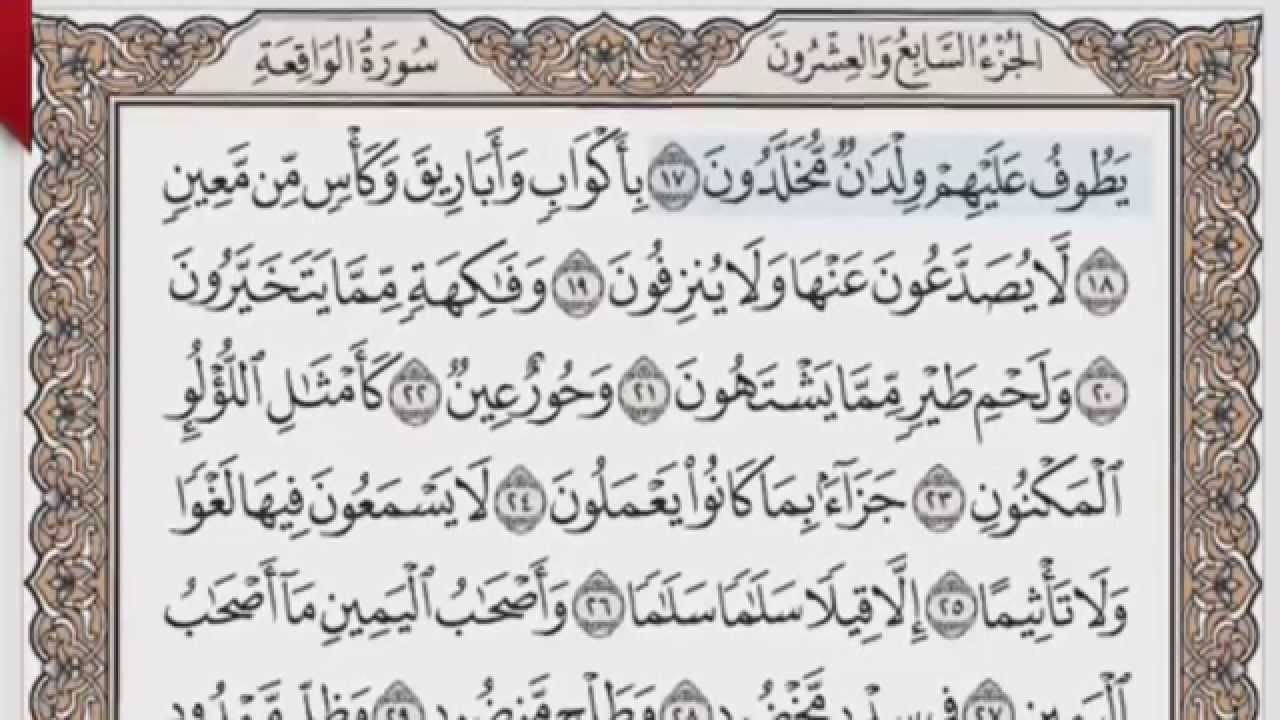 الجُزْءُ السَّابِعُ وَالعِشْرُونَ
سُورَةُ الْوَاقِعَةِ
يَطُوفُ عَلَيْهِمْ وِلْدَٰنٌ مُّخَلَّدُونَ ١٧ بِأَكْوَابٍ وَأَبَارِيقَ وَكَأْسٍ مِّن مَّعِينٍ
١٨ لَّا يُصَدَّعُونَ عَنْهَا وَلَا يُنزِفُونَ ١٩ وَفَٰكِهَةٍ مِّمَّا يَتَخَيَّرُونَ
٢٠ وَلَحْمِ طَيْرٍ مِّمَّا يَشْتَهُونَ ٢١ وَحُورٌ عِينٌ ٢٢ كَأَمْثَٰلِ ٱللُّؤْلُؤِ
ٱلْمَكْنُونِ ٢٣ جَزَآءًۢ بِمَا كَانُوا۟ يَعْمَلُونَ ٢٤ لَا يَسْمَعُونَ فِيهَا لَغْوًا
وَلَا تَأْثِيمًا ٢٥ إِلَّا قِيلًا سَلَٰمًا سَلَٰمًا ٢٦ وَأَصْحَٰبُ ٱلْيَمِينِ مَآ أَصْحَٰبُ
ٱلْيَمِينِ ٢٧ فِى سِدْرٍ مَّخْضُودٍ ٢٨ وَطَلْحٍ مَّنضُودٍ ٢٩ وَظِلٍّ مَّمْدُودٍ